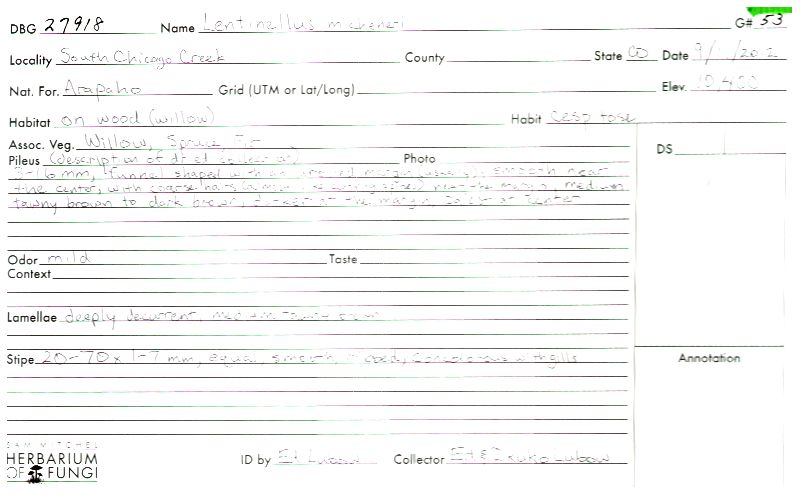 DBG 27918 Name Lentinellus micheneri G# 53
Locality South Chicago Creek County State CO Date 9/
Nat. For. Arapaho Grid (UTM or Lat/Long) Elev. 10,400
Habitat on wood (willow) Habit
Assoc. Veg. Willow, Spruce, Fir DS
Pileus (description of Photo
3-16 mm, funnel shaped with an margin smooth near
the center, with coarse hairs near the margin, medium
tawny brown to dark brown, darker at the margin, at center
Odor mild Taste
Context
Lamellae deeply decurrent, medium
Stipe 20-70 x 1-7 mm, equal, smooth, with gills
Annotation
SAM MITCHEL
HERBARIUM
OF FUNGI
ID by Ed Lubow Collector Ed & Ikuko Lubow